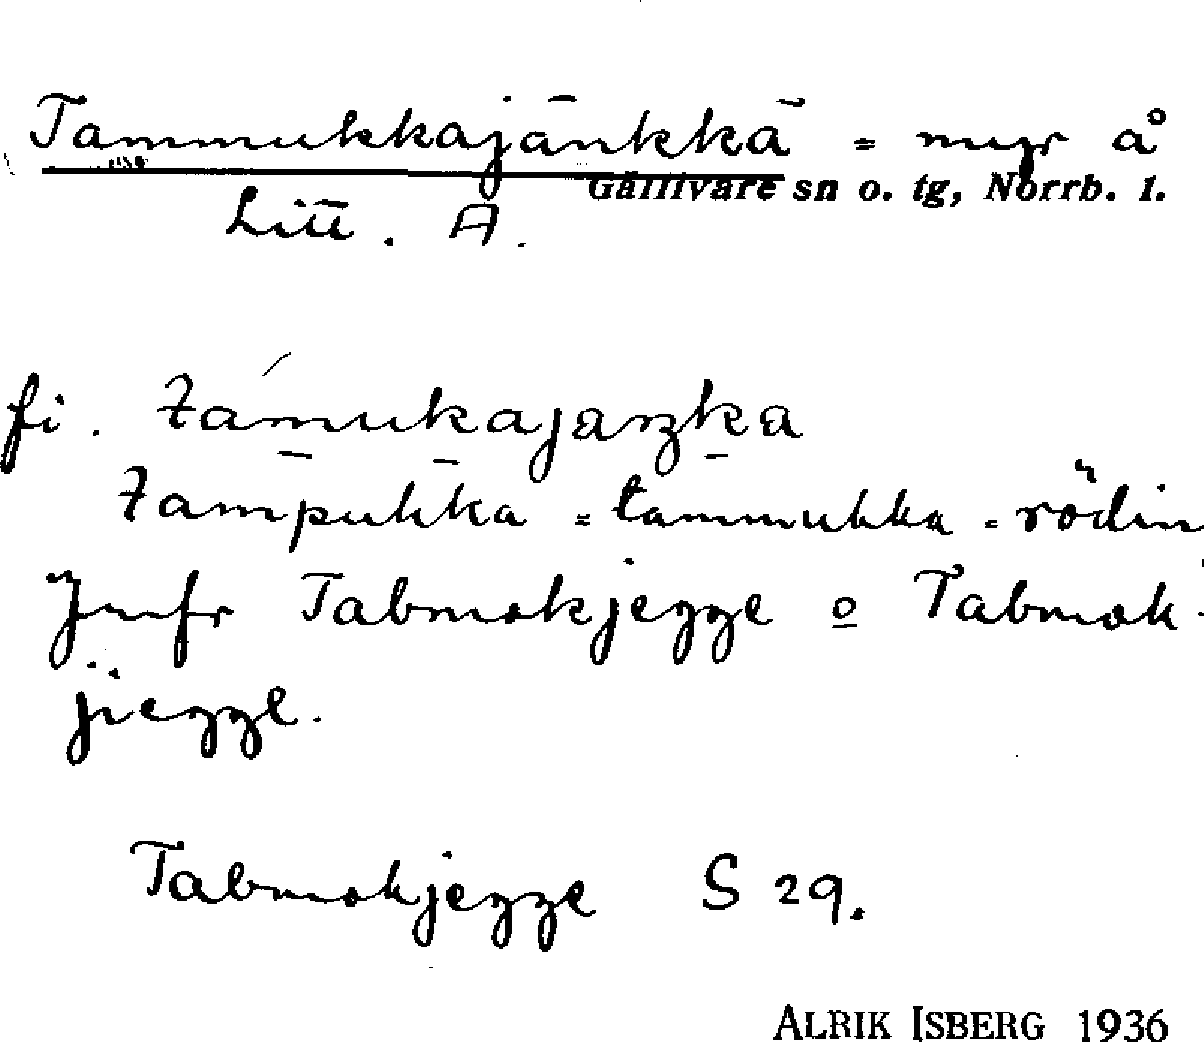 Tammukkajänkkä = myr å
Gällivare sn o. tg, Norrb. l.
Litt. A.
fi. támukajaŋka
tampukka = tammukka = rödin
Jmfr Tabmokjegge o Tabmok-
jiegge.
Tabmokjegge S 29.
ALRIK ISBERG 1936